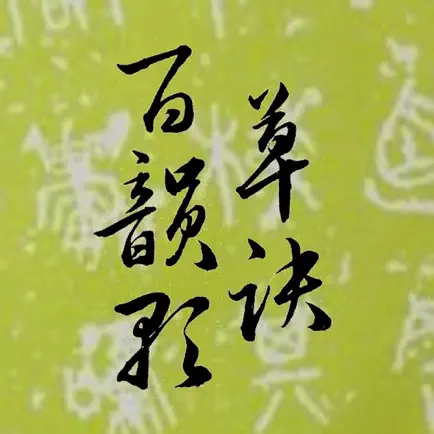 草诀
百韵歌